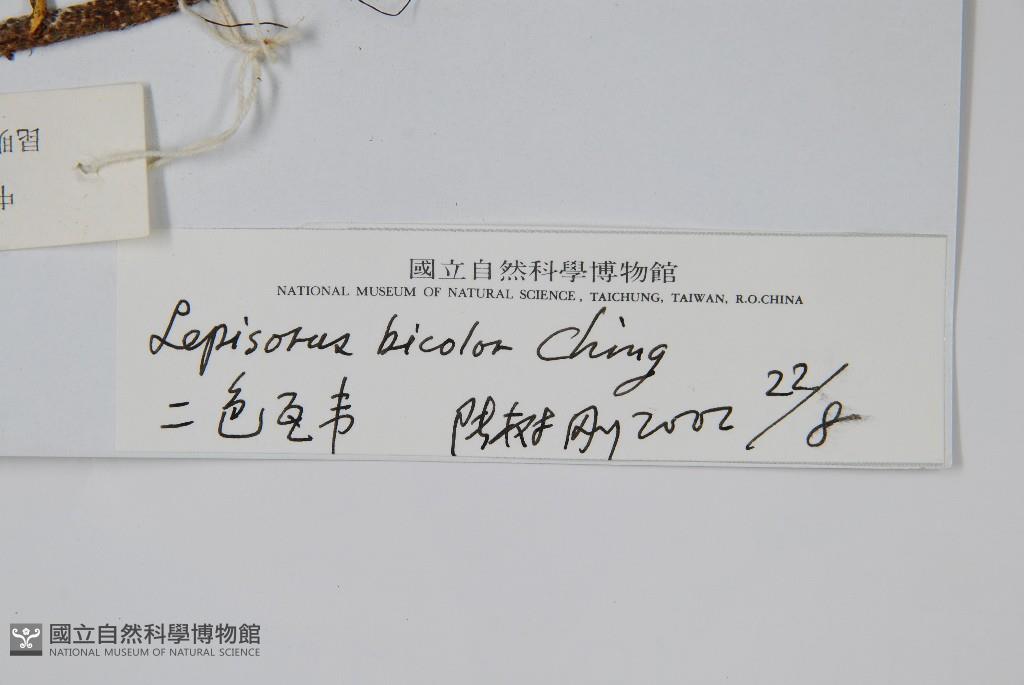 昆明
中
國立自然科學博物館
NATIONAL MUSEUM OF NATURAL SCIENCE, TAICHUNG, TAIWAN, R.O.CHINA
Lepisorus bicolor Ching
二色瓦韦 陆树刚 2002 22/8
國立自然科學博物館
NATIONAL MUSEUM OF NATURAL SCIENCE